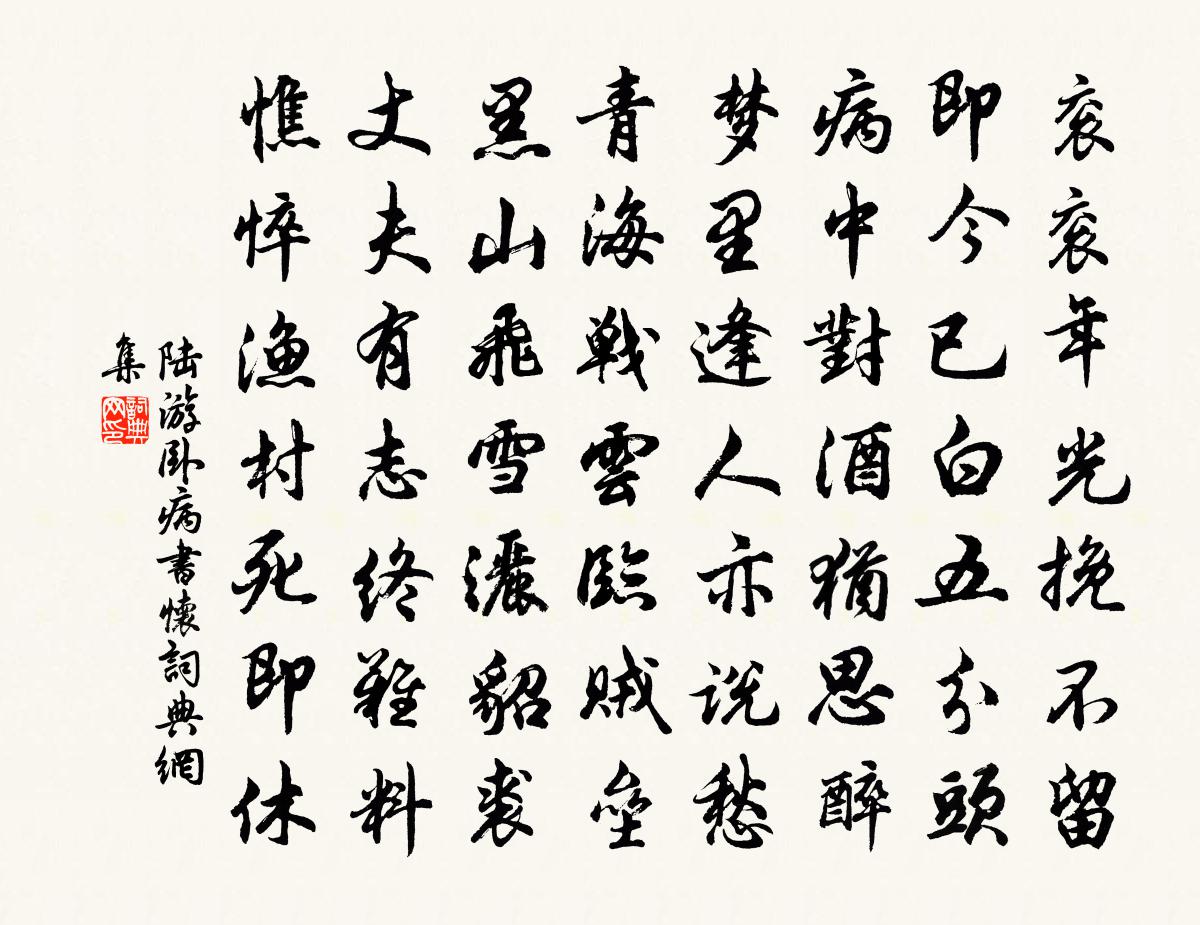 衮衮年光挽不留
即今已白五分頭
病中對酒猶思醉
梦里逢人亦説愁
青海戰雲臨賊壘
黑山飛雪灑貂裘
丈夫有志終難料
憔悴漁村死即休
陆游卧病書懷詞典網
集
詞典网印